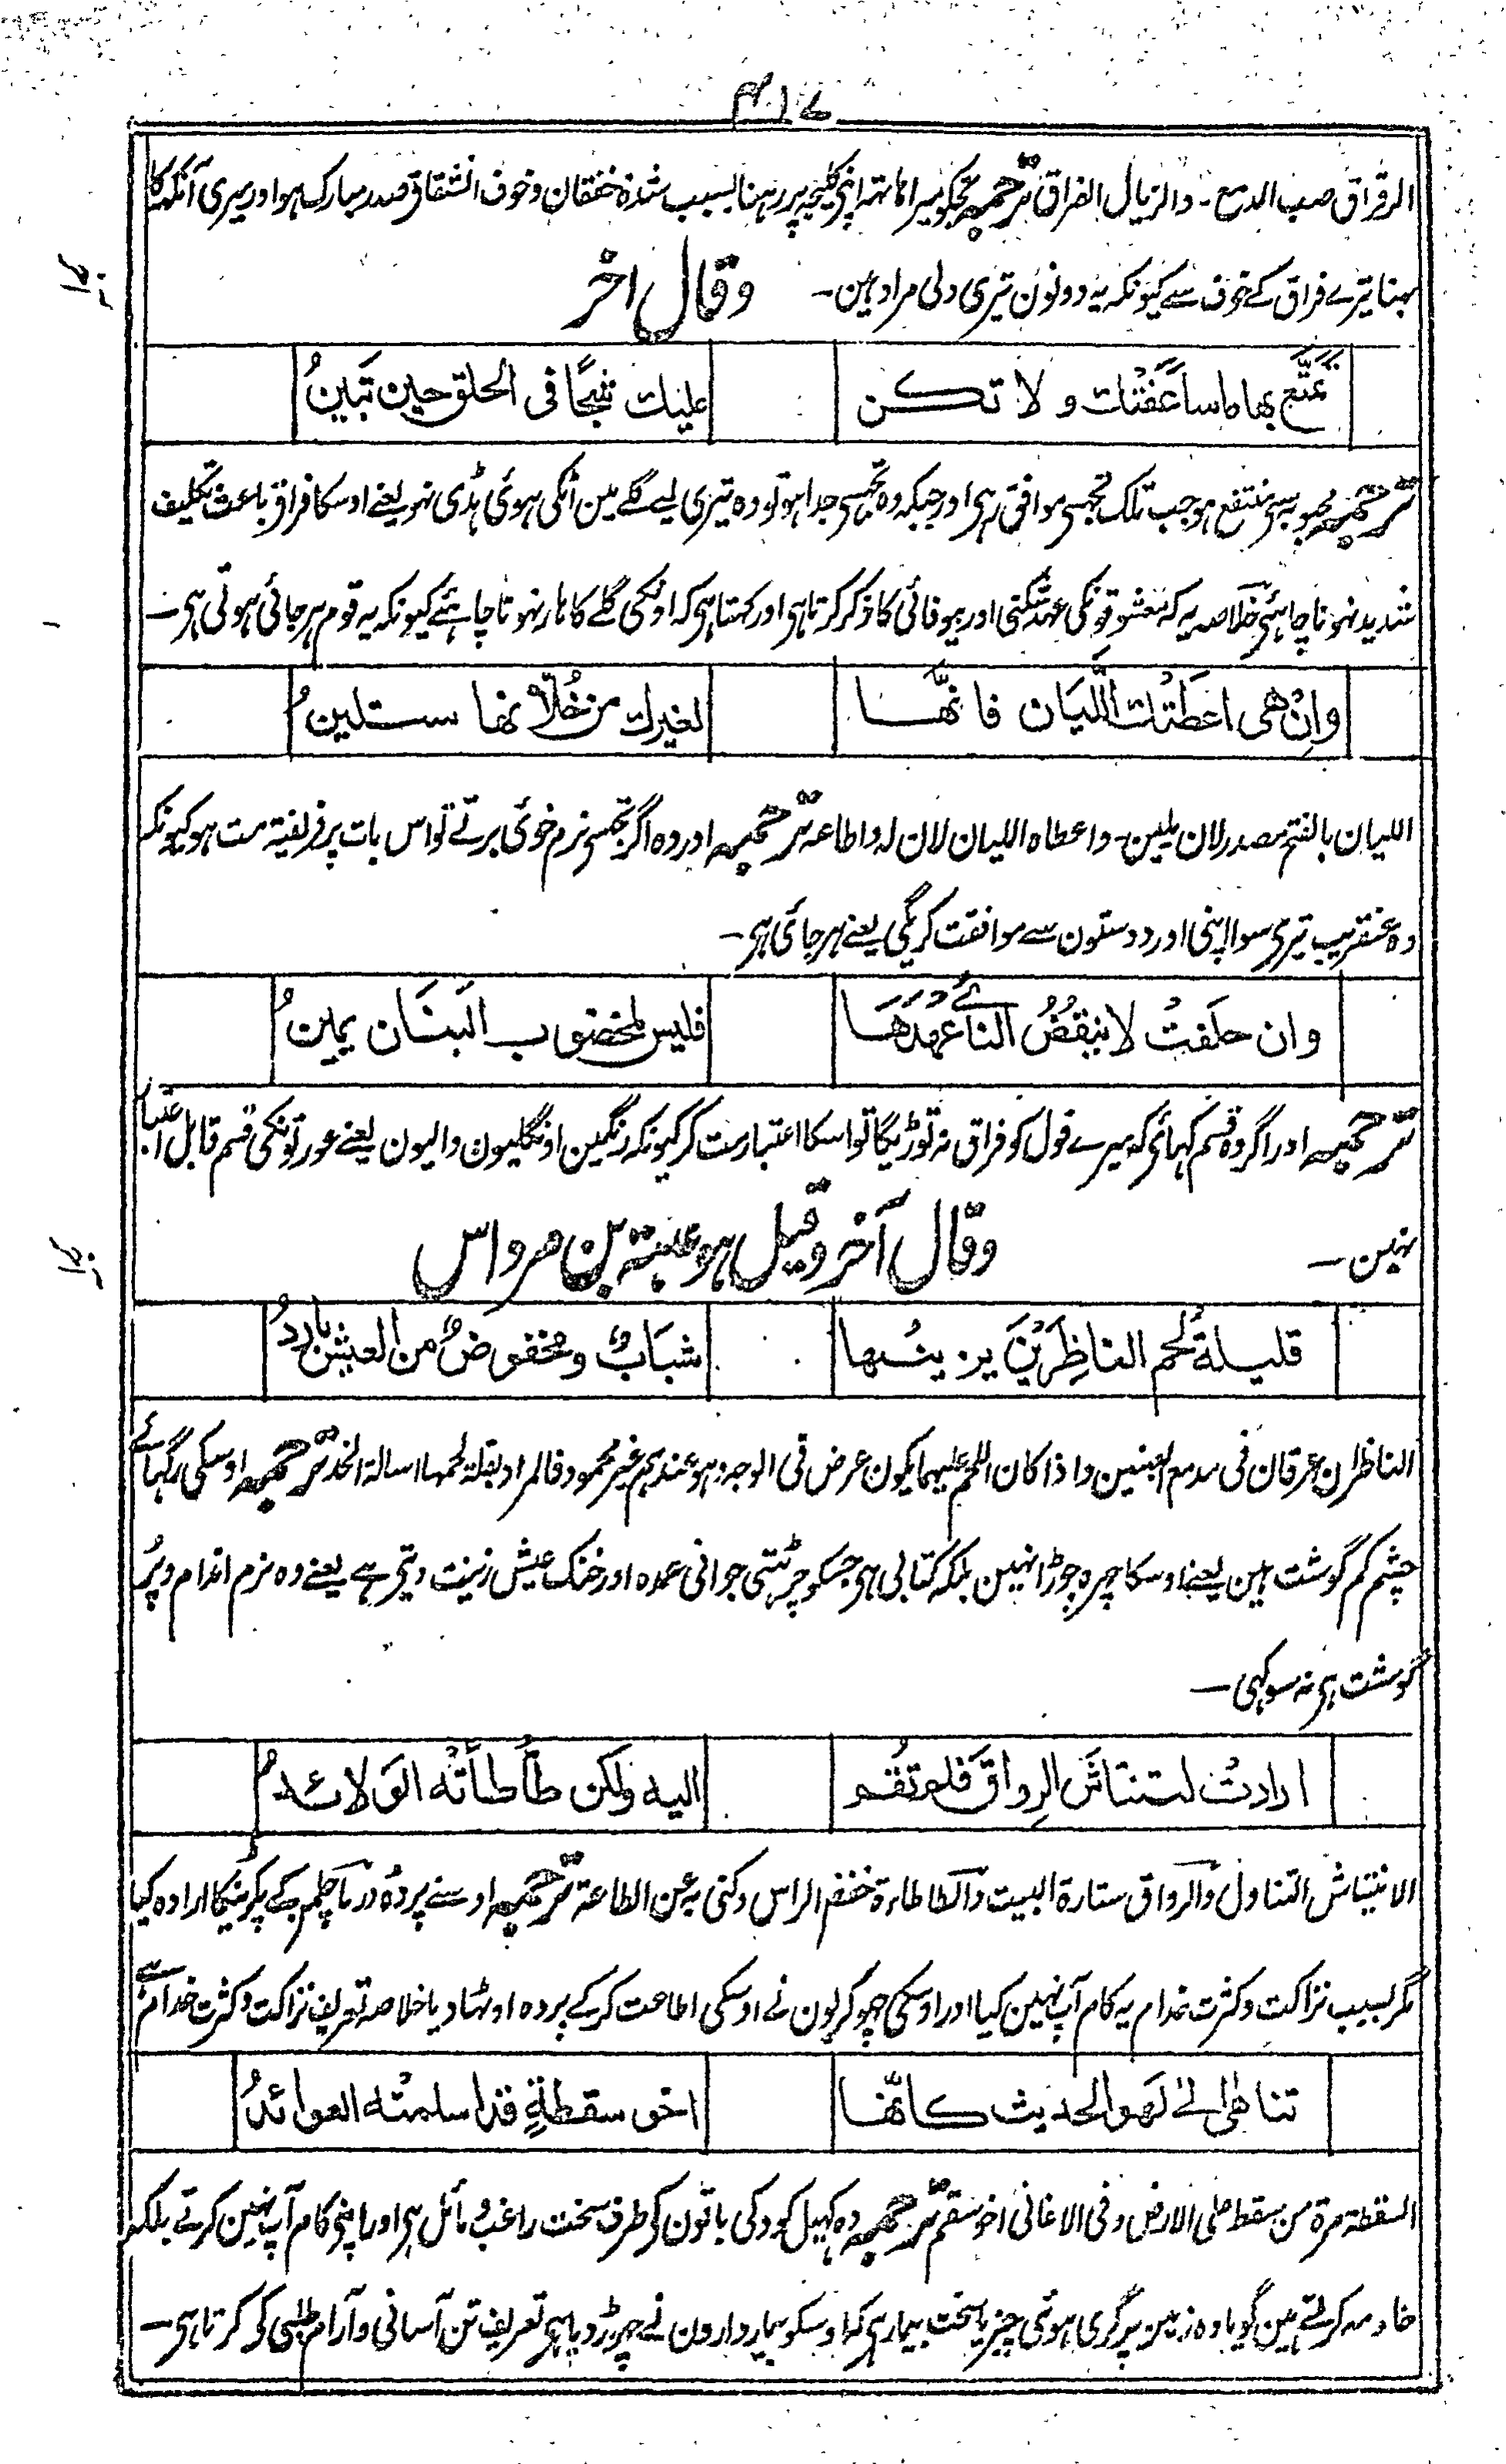 ۴۱۷
الرقراق صب الدمع۔ والزیال الفراق ترجمہ تجکو میرا ہاتھہ اپنی کلیجہ پر رہنا بسبب شدۃ خفقان و خوف انشقاق صدر مبارک ہو اور میری آنکہہ کا
بہنا تیرے فراق کے خوف سے کیونکہ یہ دونون تیری دلی مراد ہین۔ وقال اخر
تَمَتَّع بها ما ساعَفَتْك ولا تكن عليك شجًا فی الحلق حين تَبِينُ
ترجمہ محبوبہ سی منتفع ہو جب تلک تجہسی موافق رہی اور جبکہ وہ تجہسی جدا ہو تو وہ تیری لیے گلے مین اٹکی ہوئی ہڈی نہو یعنے اوسکا فراق باعث تکلیف
شدید نہونا چاہئی خلاصہ یہ کہ معشوقونکی عہد شکنی اور بیوفائی کا ذکر کرتا ہی اور کہتا ہی کہ اونکی گلے کا ہار نہونا چاہئے کیونکہ یہ قوم ہر جائی ہوتی ہی۔
وانْ هی اعطَتْك اللَّيَان فانّها لغيرك من خُلّانها ستلينُ
اللیان بالفتح مصدر لان یلین۔ واعطاہ اللیان لان لہ واطاعہ ترجمہ اور وہ اگر تجہسی نرم خوئی برتے تو اس بات پر فریفتہ مت ہو کیونکہ
وہ عنقریب تیری سوا اپنی اور دوستون سے موافقت کریگی یعنے ہر جائی ہی۔
وان حلَفتْ لا ينقضُ النأیُ عهدَها فليس لمخضوب البَنَان يمينُ
ترجمہ اور اگر وہ قسم کہائی کہ میرے قول کو فراق نہ توڑیگا تو اسکا اعتبار مت کر کیونکہ رنگین اونگلیون والیون یعنے عورتونکی قسم قابل اعتبار
نہین۔ وقال آخر وقیل ہو عتبۃ بن مرداس
قليلةُ لحم الناظِرَيْنِ يزينُها شبَابٌ ومخفوضٌ من العيش باردُ
الناظران عرقان فی مدمع العینین واذا کان اللحم علیہما یکون عرض فی الوجہ وہو عندہم غیر محمود فالمراد بقلۃ لحمہا اسالۃ الخد ترجمہ اوسکی رگہائے
چشم کم گوشت ہین یعنے اوسکا چہرہ چوڑا نہین بلکہ کتابی ہی جسکو چڑہتی جوانی عمدہ اور خنک عیش زینت دیتی ہے یعنے وہ نرم اندام و پُر
گوشت ہی نہ سوکہی۔
ارادتْ لتنتاشَ الرِواقَ فلم تقُم اليه ولكن طأْطأَتْه الوَلائدُ
الانتیاش التناول والرواق ستارۃ البیت والطاطاءۃ خفض الراس وکنی بہ عن الطاعۃ ترجمہ اوسنے پردہ در یا چلمن کے پکڑنیکا ارادہ کیا
مگر بسبب نزاکت و کثرت خدام یہ کام آپ نہین کیا اور اوسکی چہوکریون نے اوسکی اطاعت کر کے پردہ اوٹہا دیا خلاصہ تعریف نزاکت و کثرت خدام ہے
تناهی الى لَهو الحديث كانّها اخو سقطةٍ قد اسلمتْه العوائدُ
السقطۃ مرۃ من سقط علی الارض وفی الاغانی اخو سقم ترجمہ وہ کہیل کود کی باتون کی طرف سخت راغب و مائل ہی اور اپنی کام آپ نہین کرتے بلکہ
خادمہ کرتے ہین گویا وہ زمین پر گری ہوئی چیز یا سخت بیمار ہی کہ اوسکو بیمار دارون نے چہوڑ دیا ہی تعریف تن آسانی و آرام طلبی کی کرتا ہی۔